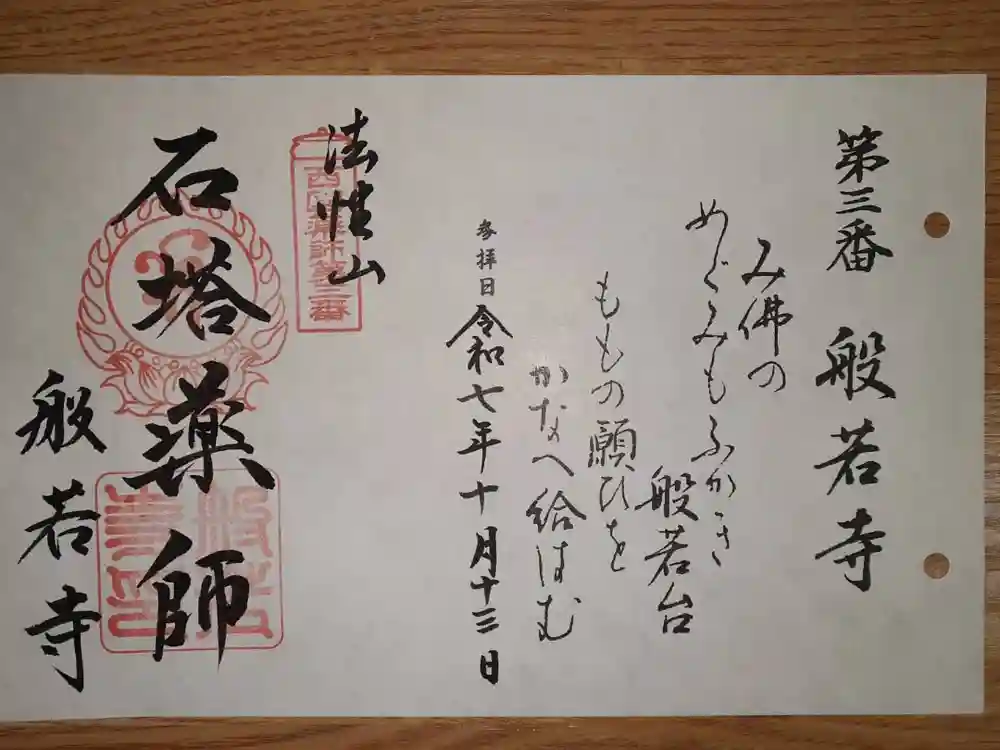 第三番 般若寺
み佛の
めぐみもふかき
般若台
もも の願ひを
かなへ給はむ
参拝日 令和七年十月十三日
法性山
西国薬師第三番
石塔薬師
般若寺